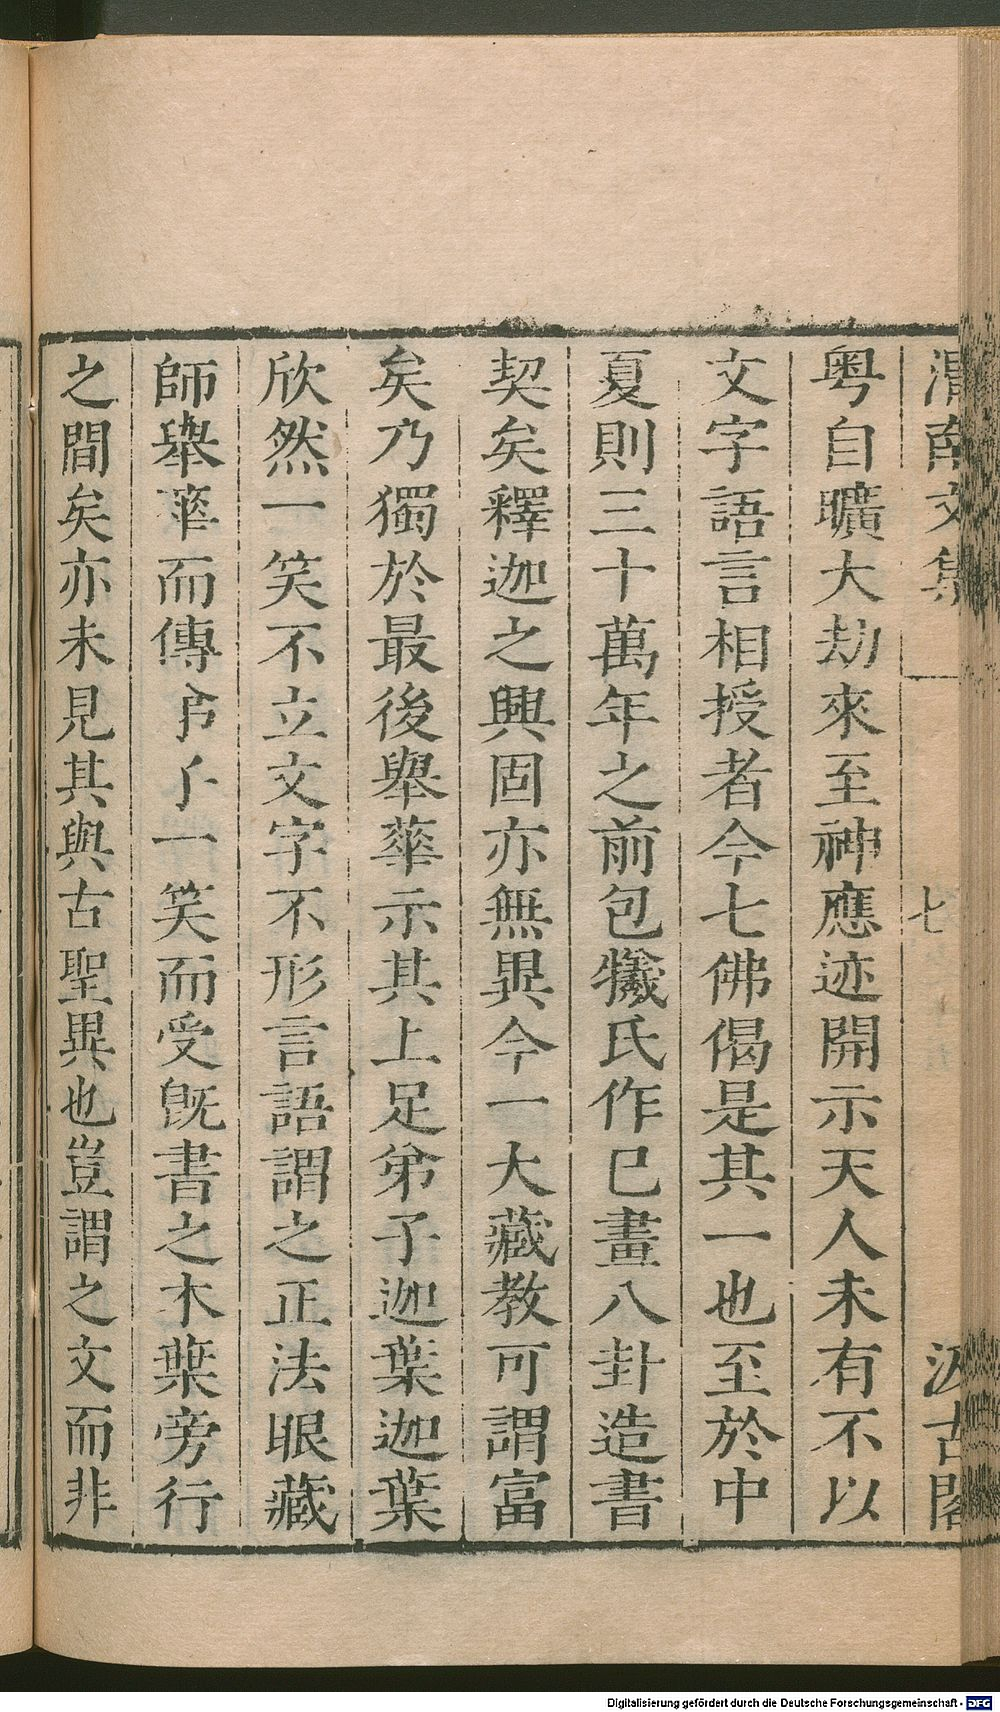 渭南文集 七 汲古閣
粤自曠大劫來至神應迹開示天人未有不以
文字語言相授者今七佛偈是其一也至於中
夏則三十萬年之前包犧氏作已畫八卦造書
契矣釋迦之興固亦無異今一大藏教可謂富
矣乃獨於最後舉華示其上足弟子迦葉迦葉
欣然一笑不立文字不形言語謂之正法眼藏
師舉華而傳弟子一笑而受旣書之木葉旁行
之間矣亦未見其與古聖異也豈謂之文而非
Digitalisierung gefördert durch die Deutsche Forschungsgemeinschaft - DFG